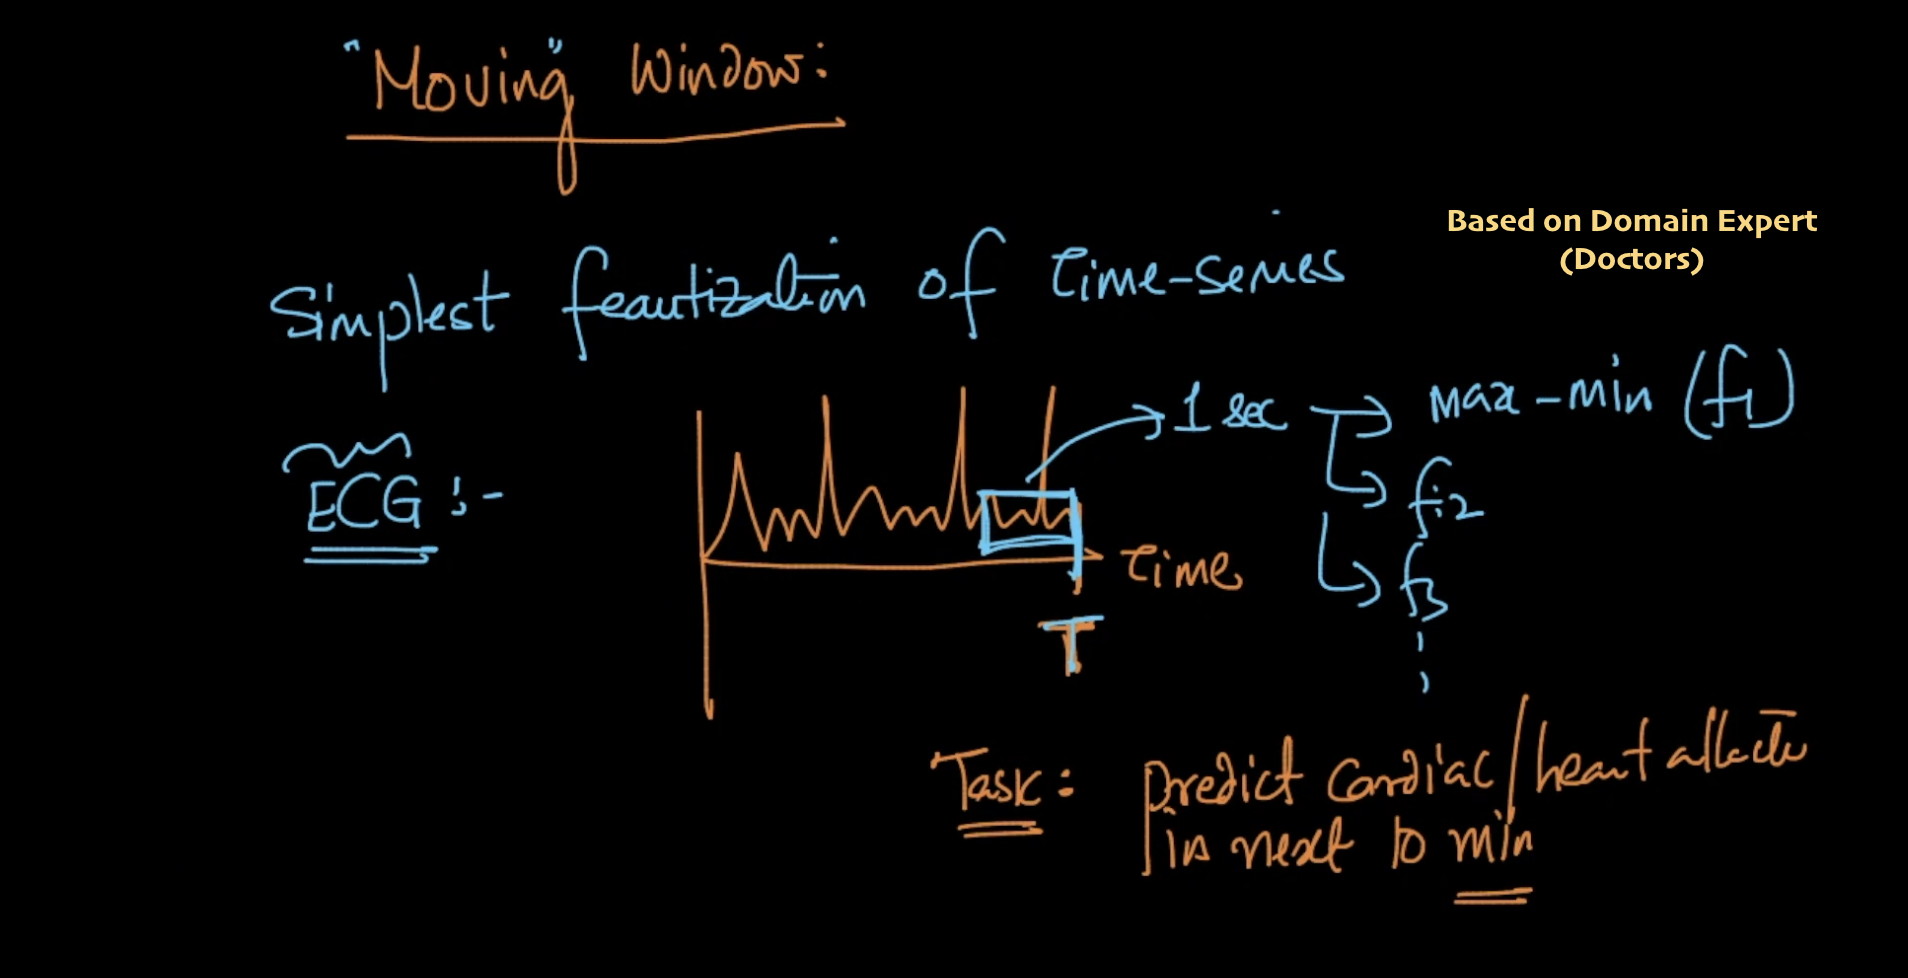 "Moving" Window:
Based on Domain Expert
(Doctors)
Simplest feautization of time-series
ECG :-
1 sec
max-min (f1)
fi2
f3
time
T
Task: predict cardiac/heart attack
in next 10 min